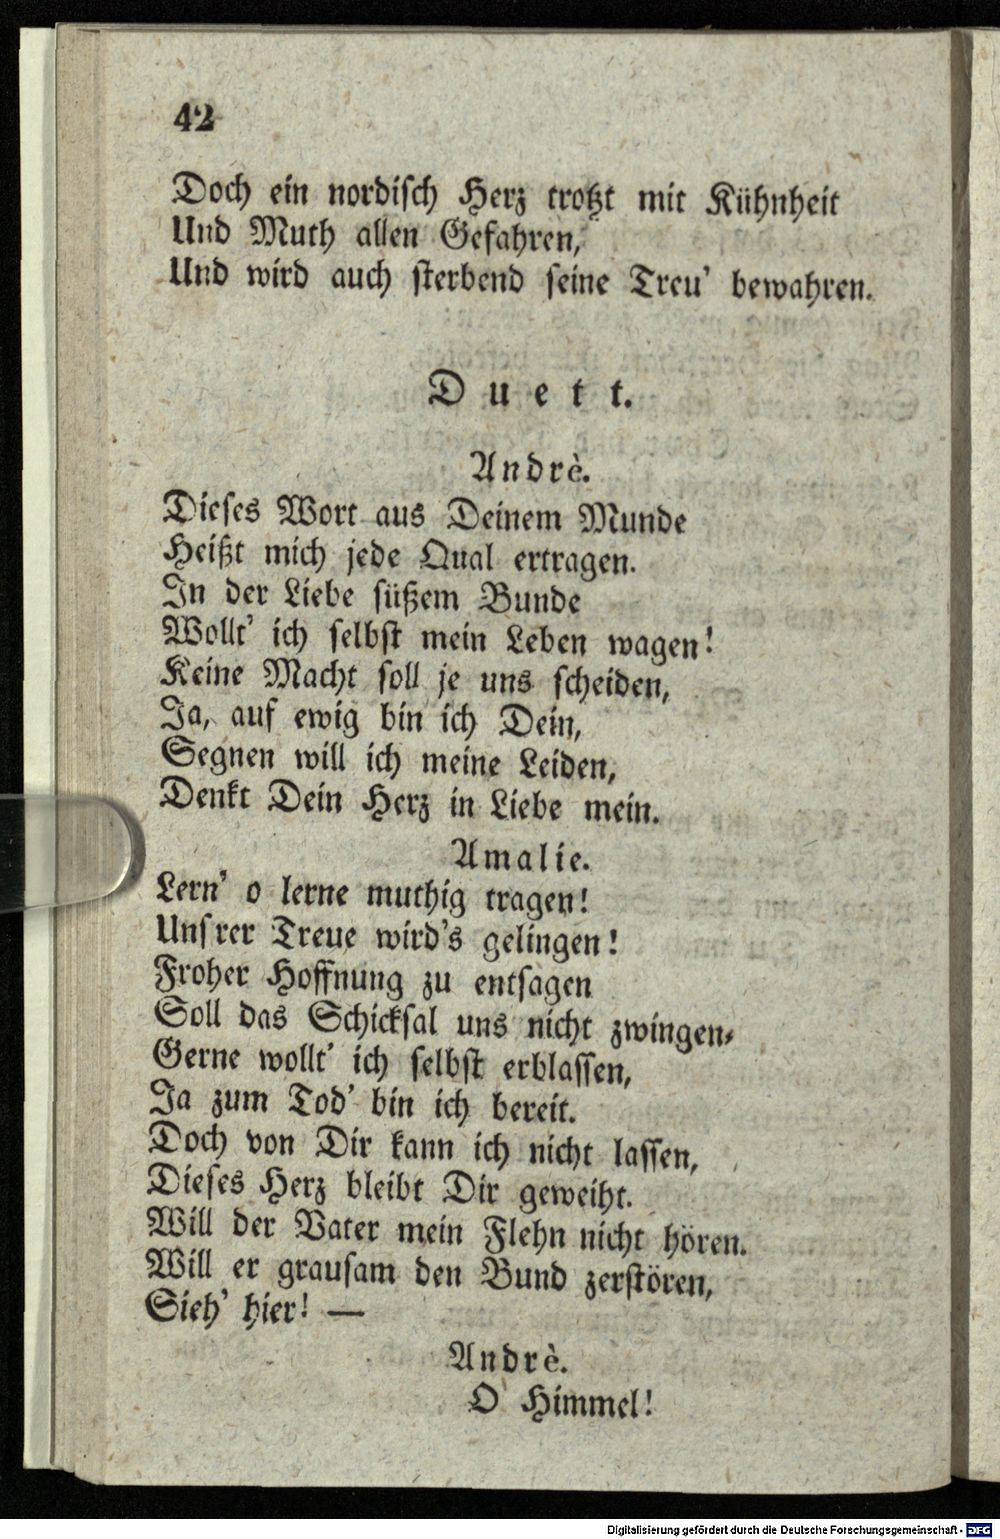 42
Doch ein nordisch Herz trotzt mit Kühnheit
Und Muth allen Gefahren,
Und wird auch sterbend seine Treu' bewahren.
Duett.
Andrè.
Dieses Wort aus Deinem Munde
Heißt mich jede Qual ertragen.
In der Liebe süßem Bunde
Wollt' ich selbst mein Leben wagen!
Keine Macht soll je uns scheiden,
Ja, auf ewig bin ich Dein,
Segnen will ich meine Leiden,
Denkt Dein Herz in Liebe mein.
Amalie.
Lern' o lerne muthig tragen!
Unsrer Treue wird's gelingen!
Froher Hoffnung zu entsagen
Soll das Schicksal uns nicht zwingen,
Gerne wollt' ich selbst erblassen,
Ja zum Tod' bin ich bereit.
Doch von Dir kann ich nicht lassen,
Dieses Herz bleibt Dir geweiht.
Will der Vater mein Flehn nicht hören.
Will er grausam den Bund zerstören,
Sieh' hier! —
Andrè.
O Himmel!
Digitalisierung gefördert durch die Deutsche Forschungsgemeinschaft - DFG